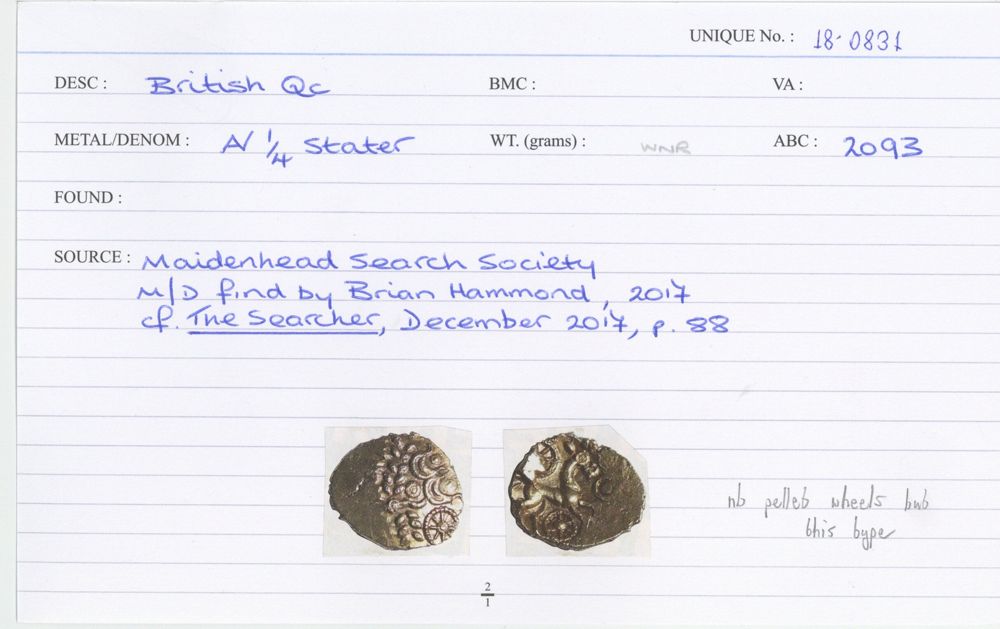 UNIQUE No. : 18-0831
DESC : British Qc BMC : VA :
METAL/DENOM : A/ 1/4 Stater WT. (grams) : WNR ABC : 2093
FOUND :
SOURCE : Maidenhead Search Society
M/D find by Brian Hammond, 2017
cf. The Searcher, December 2017, p. 88
nb pellet wheels but
this type
2/1